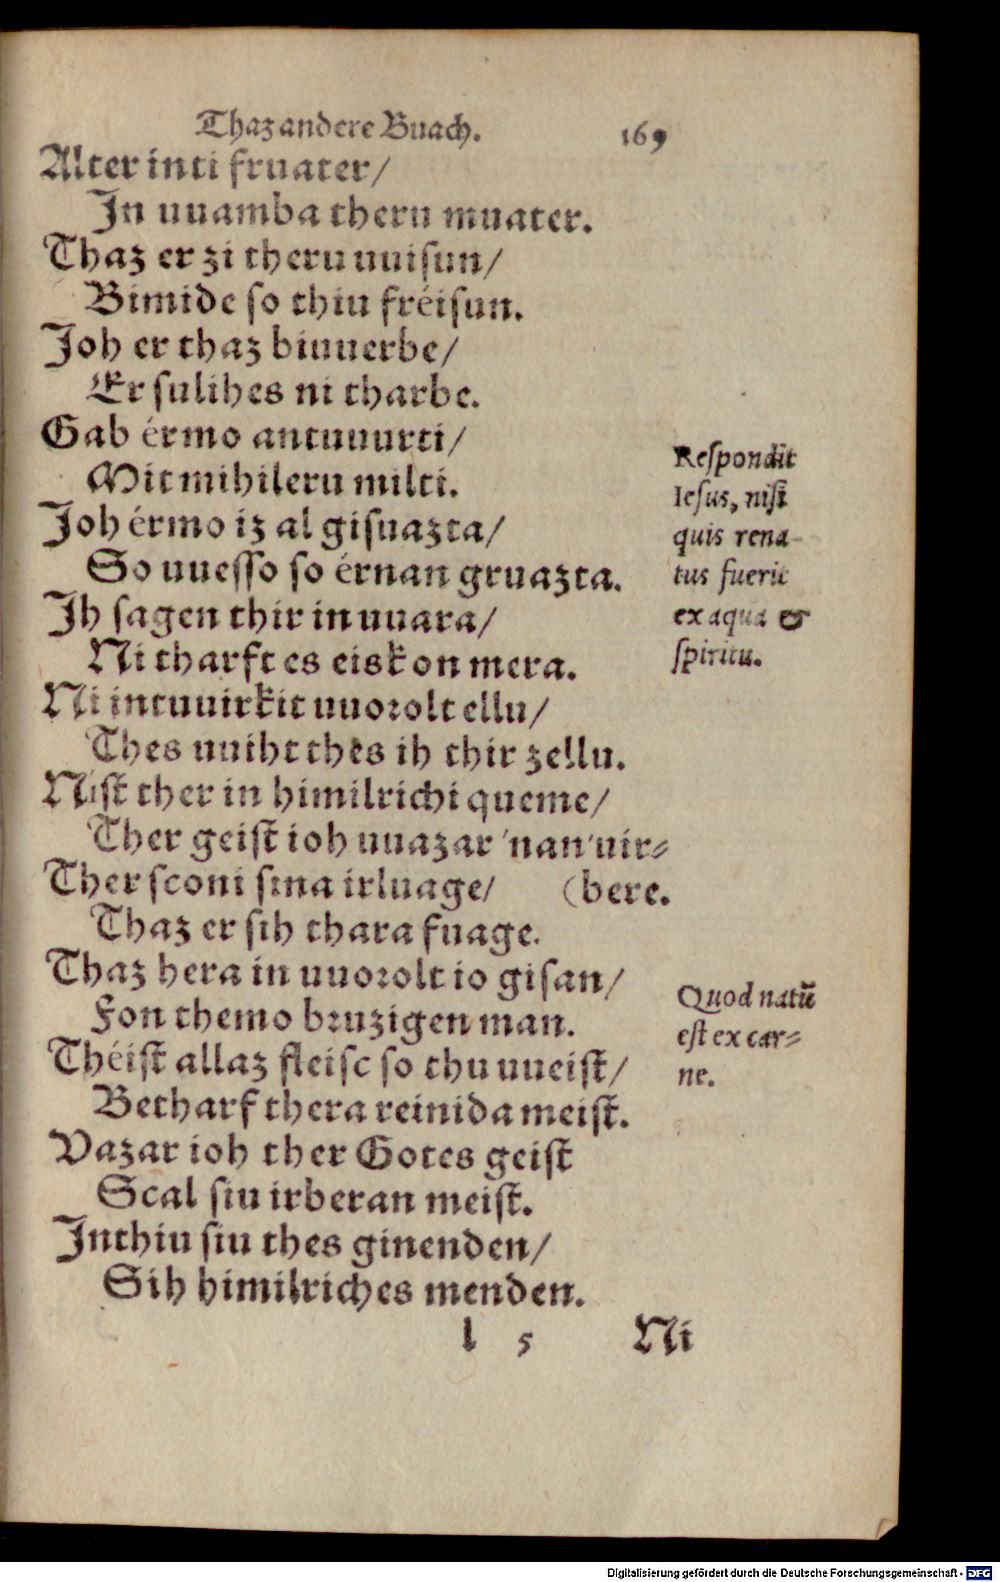 Thaz andere Buach. 169
Alter inti fruater/
In uuamba theru muater.
Thaz er zi theru uuisun/
Bimide so thiu fréisun.
Joh er thaz biuuerbe/
Er sulihes ni tharbe.
Gab érmo antuuurti/
Mit mihileru milti.
Joh érmo iz al gisuazta/
So uuesso so érnan gruazta.
Ih sagen thir in uuara/
Ni tharft es eiskon mera.
Ni intuuirkit uuorolt ellu/
Thes uuiht thès ih thir zellu.
Nist ther in himilrichi queme/
Ther geist ioh uuazar 'nan'uir⸗
Ther sconi sina irluage/ (bere.
Thaz er sih thara fuage.
Thaz hera in uuorolt io gisan/
Fon themo bruzigen man.
Théist allaz fleisc so thu uueist/
Betharf thera reinida meist.
Vazar ioh ther Gotes geist
Scal siu irberan meist.
Inthiu siu thes ginenden/
Sih himilriches menden.
l 5 Ni
Respondit
Iesus, nisi
quis rena-
tus fuerit
ex aqua &
spiritu.
Quod natū
est ex car⸗
ne.
Digitalisierung gefördert durch die Deutsche Forschungsgemeinschaft - DFG